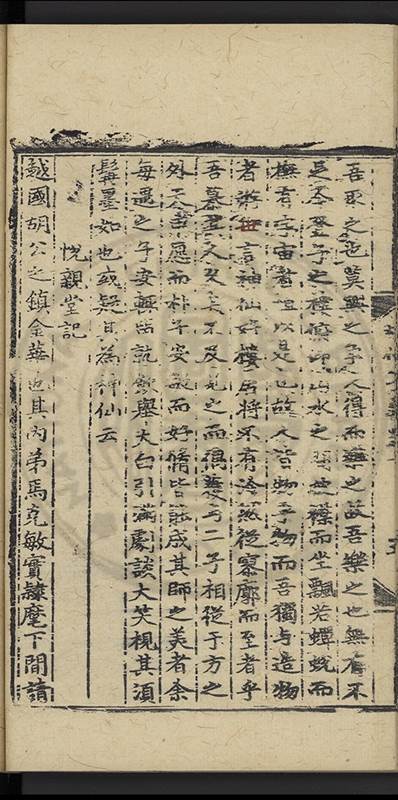 吾取之也莫與之爭人得而樂之故吾樂之也無有不
是吾登子之樓俯仰山水之間披襟而坐飄若蟬蛻而
撫有宇宙者以是也故人皆物乎物而吾獨與造物
者遊世言神仙好樓居將不有泠然從寥廓而至者乎
吾慕之久矣不及見之而得二子相從于方之
外愿而朴子安敏而好脩皆能成其師之美者余
每過之子安輒出就飲舉大白引滿劇談大笑視其須
髯墨如也或疑其為神仙云
悅親堂記
越國胡公之鎮金華也其內弟馬克敏實隸麾下間請